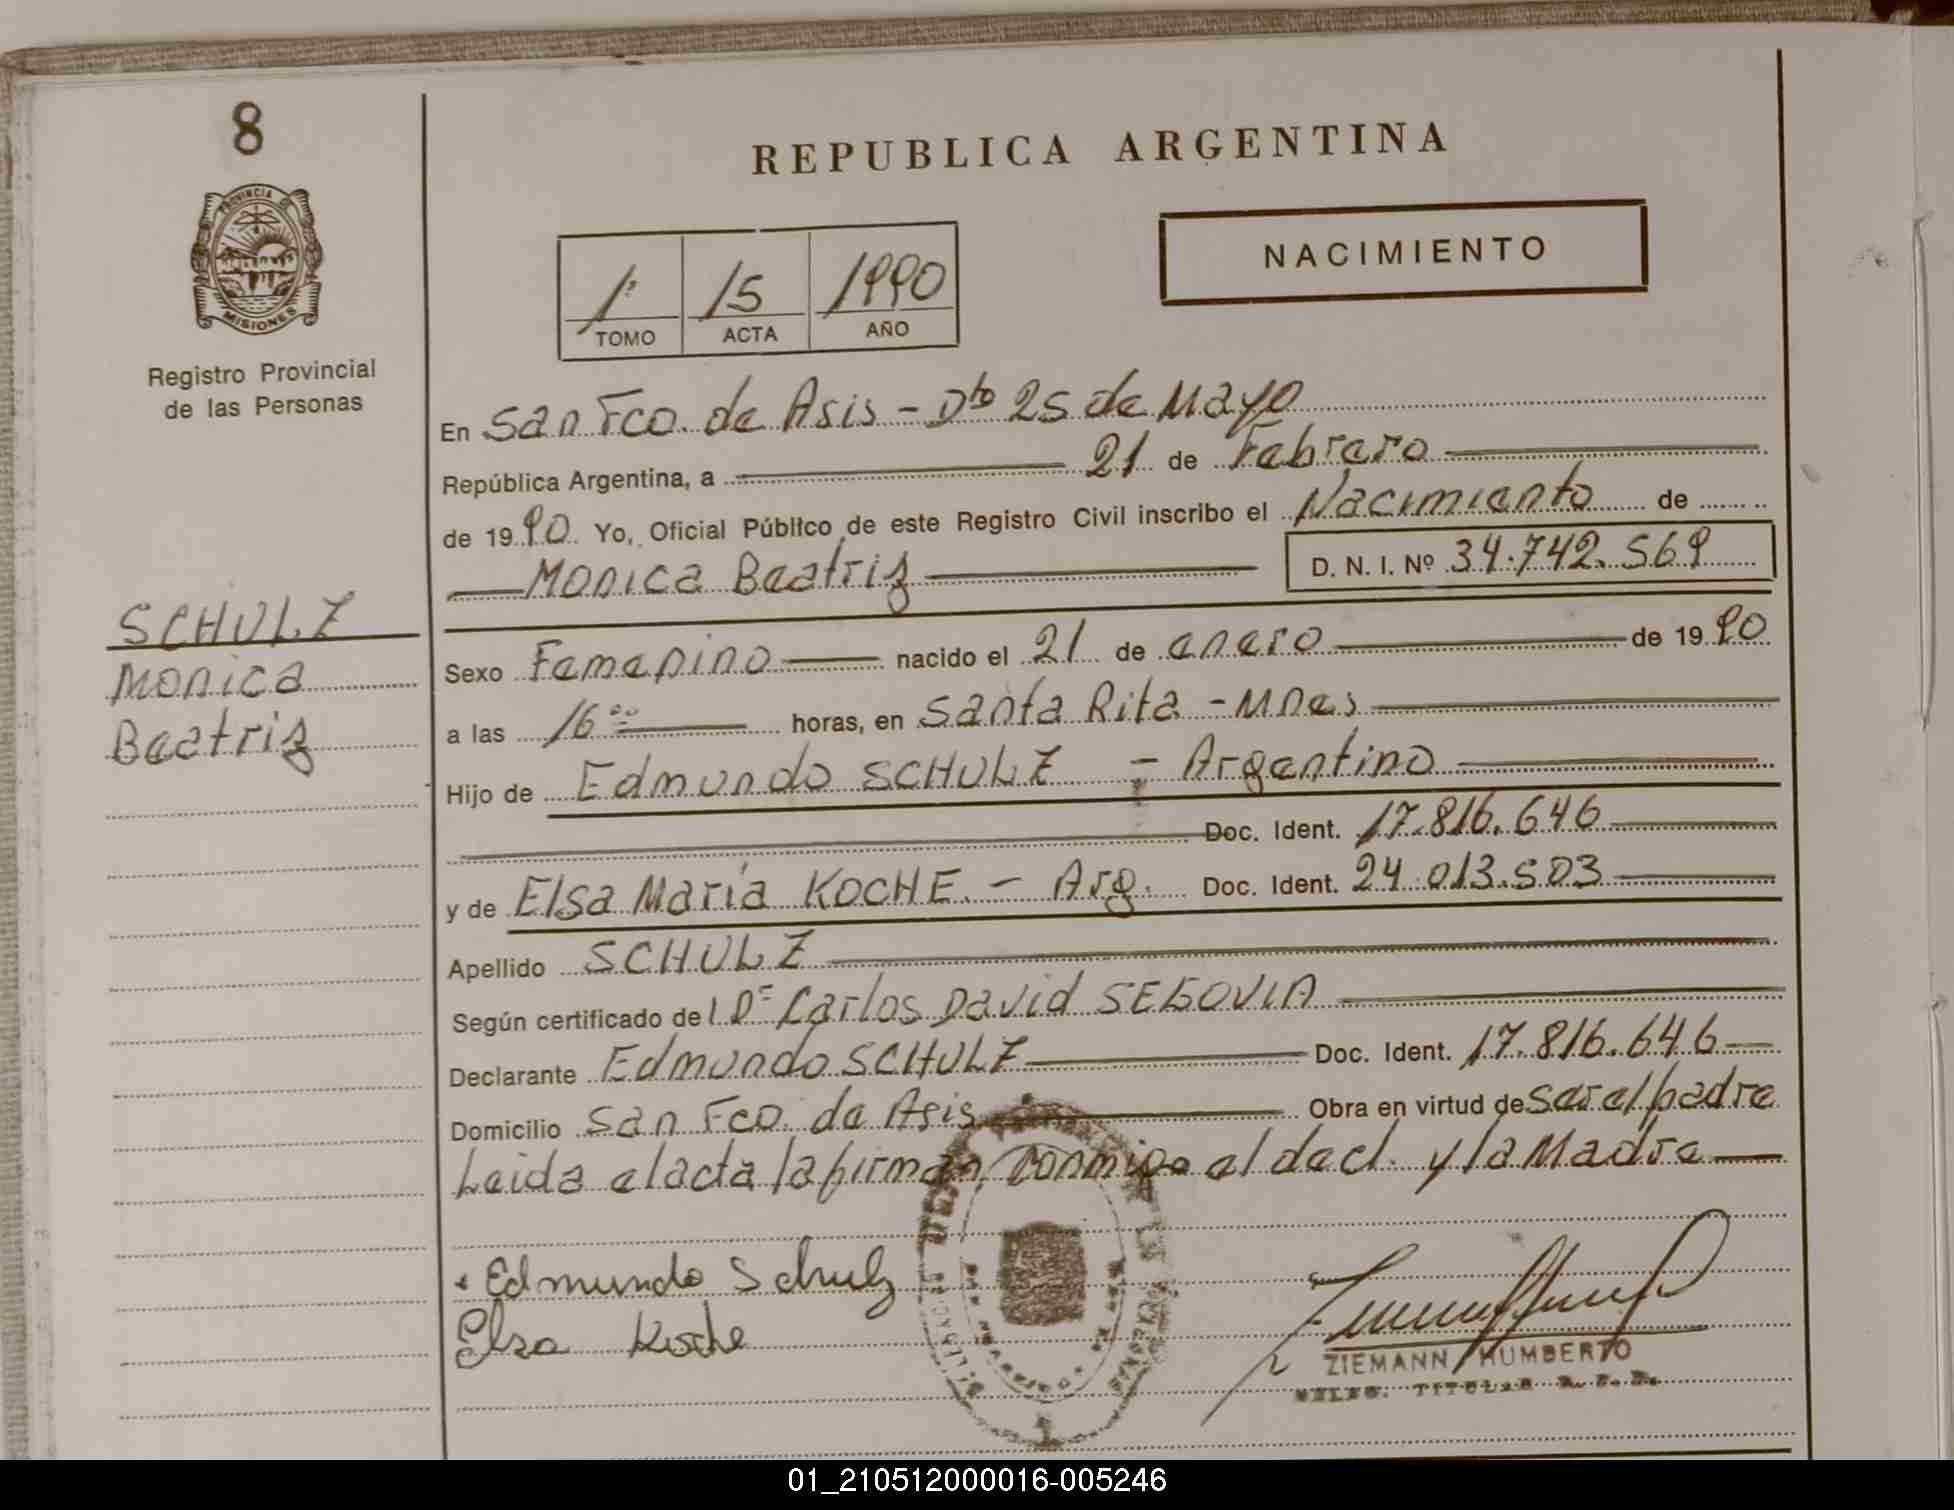 8
PROVINCIA DE
MISIONES
Registro Provincial
de las Personas
SCHULZ
Monica
Beatriz
REPUBLICA ARGENTINA
1º 15 1990
TOMO ACTA AÑO
NACIMIENTO
En San Fco. de Asis - Dto 25 de Mayo
República Argentina, a 21 de Febrero
de 1990 Yo, Oficial Público de este Registro Civil inscribo el Nacimiento de
Monica Beatriz D. N. I. Nº 34.742.569
Sexo Femenino nacido el 21 de enero de 1990
a las 16 00 horas, en Santa Rita - Mnes
Hijo de Edmundo SCHULZ - Argentino
Doc. Ident. 17.816.646
y de Elsa María KOCHE. - Arg. Doc. Ident. 24.013.503
Apellido SCHULZ
Según certificado del Dr Carlos David SEGOVIA
Declarante Edmundo SCHULZ Doc. Ident. 17.816.646
Domicilio San Fco. de Asis Obra en virtud de ser el padre
Leida el acta la firman conmigo el decl. y la Madre
Edmundo Schulz
Elsa Koche
ZIEMANN HUMBERTO
DELEG. TITULAR R. P. P.
01_210512000016-005246